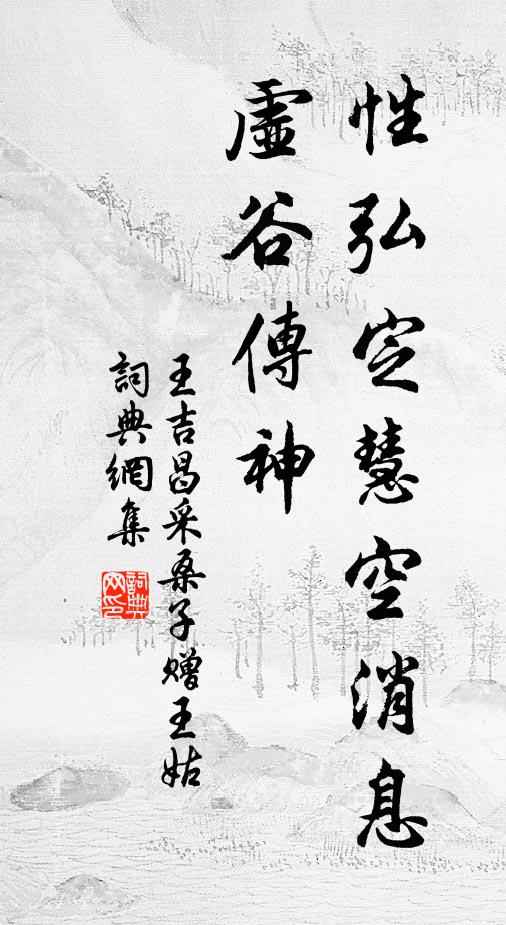 性弘定慧空消息
虛谷傳神
王吉昌采桑子贈王姑
詞典網集
詞典网印